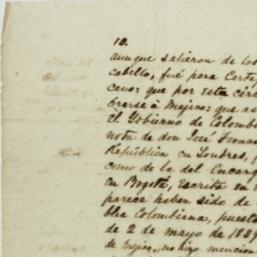 10.
aunque salieron de los
cabello, fué para Carta
cano: que por esta cir
brarse à Mejico: que as
el Gobierno de Colombi
nota de don José Ferna
República en Londres,
como de la del Encarg
en Bogotá, Escrita en
parece haben sido de
blea Colombiana, puest
de 2 de mayo de 183
de Mejico, no hizo mencion